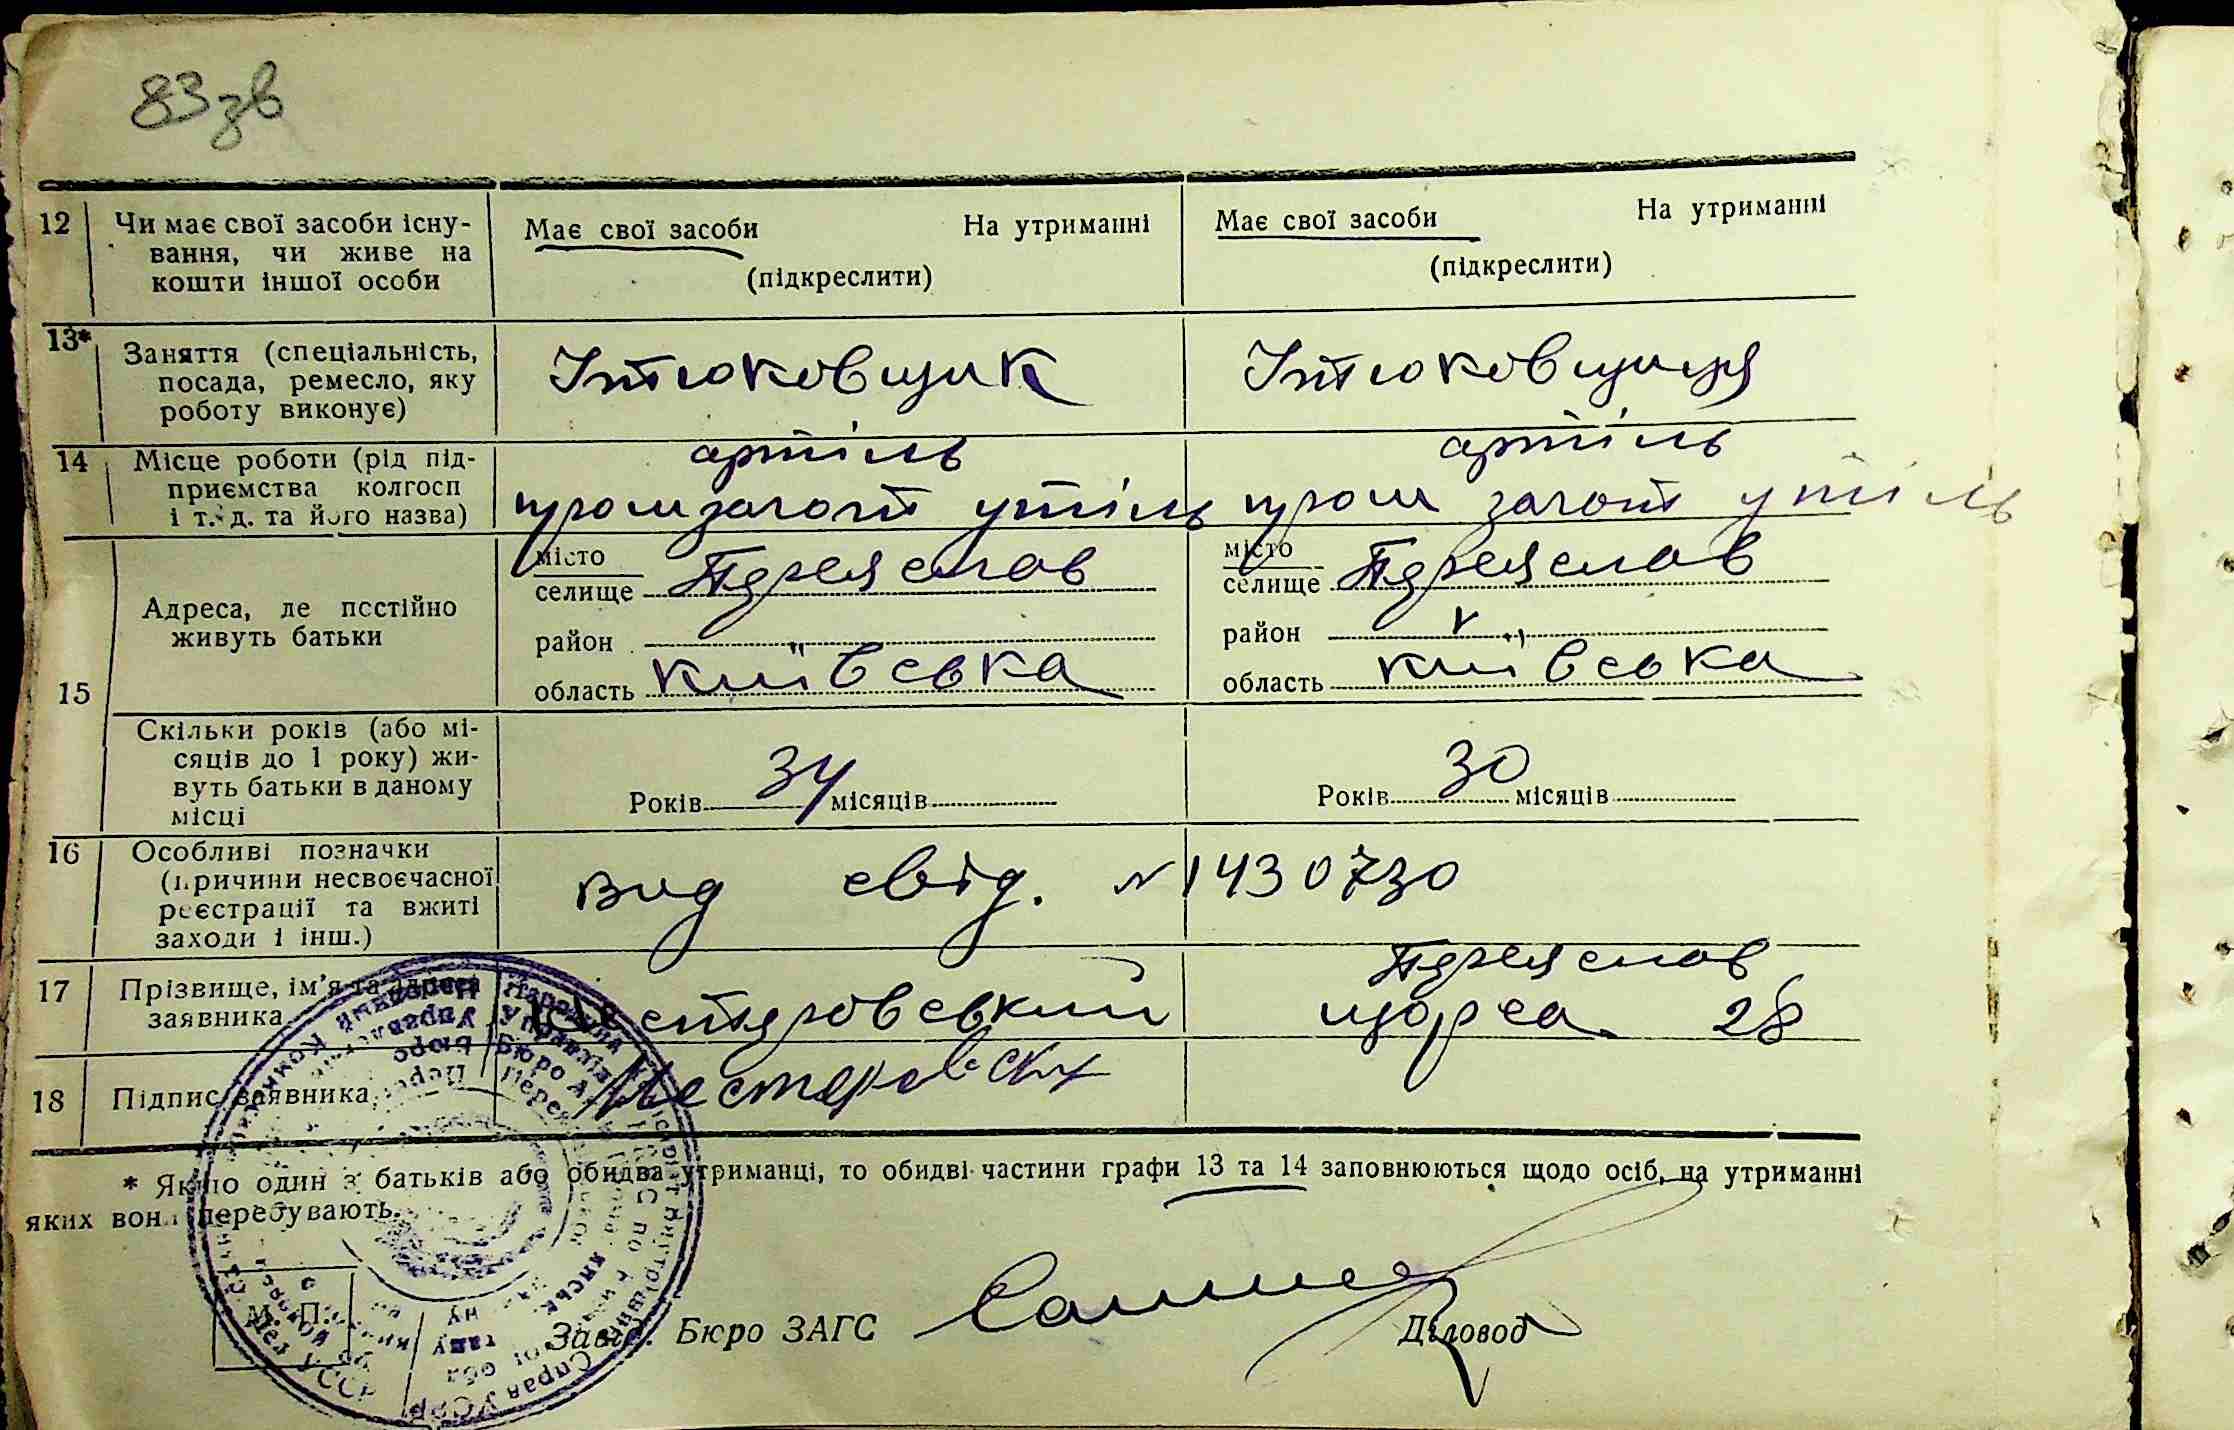 83 зв
12 Чи має свої засоби існу-
вання, чи живе на
кошти іншої особи
Має свої засоби На утриманні
(підкреслити)
Має свої засоби На утриманні
(підкреслити)
13* Заняття (спеціальність,
посада, ремесло, яку
роботу виконує)
14 Місце роботи (рід під-
приємства колгосп
і т. д. та його назва)
артіль
промзагот утіль
артіль
пром загот утіль
15 Адреса, де постійно
живуть батьки
місто
селище Переяслав
район
область Київська
місто
селище Переяслав
район
область Київська
Скільки років (або мі-
сяців до 1 року) жи-
вуть батьки в даному
місці
Років 34 місяців
Років 30 місяців
16 Особливі позначки
(причини несвоєчасної
реєстрації та вжиті
заходи і інш.)
вид свід. № 1430730
17 Прізвище, ім'я та адреса
заявника
Нестеровський
Переяслав
Щорса 28
18 Підпис заявника
* Якщо один з батьків або обидва утриманці, то обидві частини графи 13 та 14 заповнюються щодо осіб, на утриманні
яких вони перебувають.
М. П.
Зав. Бюро ЗАГС
Діловод